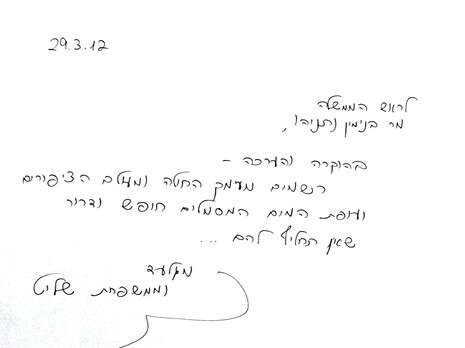 29.3.12
לראש הממשלה
מר בנימין נתניהו,
בהוקרה והערכה -
רשמים מעמק החולה ומעלם הציפורים
ועופות המים המסמלים חופש ודרור
שאין תחליף להם ...
מגלעד
וממשפחת שליט